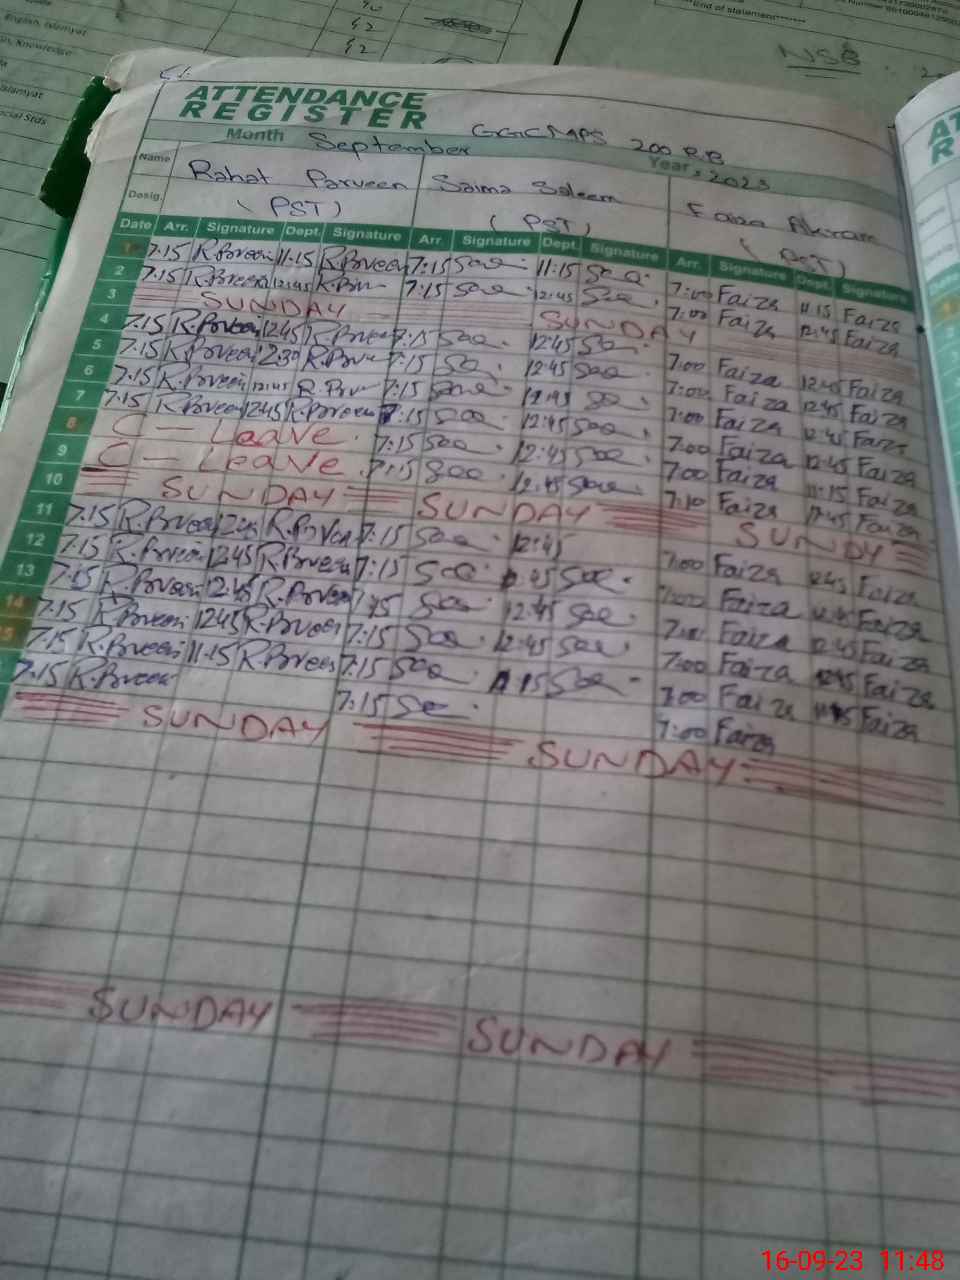 End of statement
English, Islamyat
Knowledge
Islamyat
Social Stds
NSB
ATTENDANCE
REGISTER
GGCMPS 200 RB
Month September Year: 2023
Name Rahat Parveen Saima Saleem Faiza Akram
Desig. (PST) (PST) (PST)
Date Arr. Signature Dept. Signature Arr. Signature Dept. Signature Arr. Signature Dept. Signature
1 7:15 R.Prveen 11:15 R.Prveen 7:15 Saa 11:15 Saa 7:00 Faiza 11:15 Faiza
2 7:15 R.Prveen 12:45 R.Prv 7:15 Saa 12:45 Saa 7:00 Faiza 12:45 Faiza
3 SUNDAY SUNDAY
4 7:15 R.Prveen 1245 R.Prveen 7:15 Saa 12:45 Sa 7:00 Faiza 12:45 Faiza
5 7:15 R.Prveen 12:30 R.Prv 7:15 Sa 12:45 Saa 7:00 Faiza 12:45 Faiza
6 7:15 R.Prveen 12:45 R.Prv 7:15 Saa 12:45 Sa 7:00 Faiza 12:45 Faiza
7 7:15 R.Prveen 1245 R.Prveen 7:15 Saa 12:45 Saa 7:00 Faiza 12:45 Faiza
8 C - Leave 7:15 Saa 12:45 Saa 7:00 Faiza 11:15 Faiza
9 C - Leave 7:15 Saa 12:45 Saa 7:10 Faiza 12:45 Faiza
10 SUNDAY SUNDAY SUNDY
11 7:15 R.Prveen 1245 R.Prveen 7:15 Saa 12:45 7:00 Faiza 1245 Faiza
12 7:15 R.Prveen 1245 R.Prveen 7:15 Saa 12:45 Saa 7:00 Faiza 12:45 Faiza
13 7:15 R.Prveen 12:45 R.Prveen 7:15 Saa 12:45 Saa 7:00 Faiza 12:45 Faiza
14 7:15 R.Prveen 1245 R.Prveen 7:15 Saa 12:45 Saa 7:00 Faiza 12:45 Faiza
15 7:15 R.Prveen 11:15 R.Prveen 7:15 Saa 11:15 Saa 7:00 Faiza 11:15 Faiza
7:15 R.Prveen 7:15 Sa 7:00 Faiza
SUNDAY SUNDAY
SUNDAY SUNDAY
16-09-23 11:48